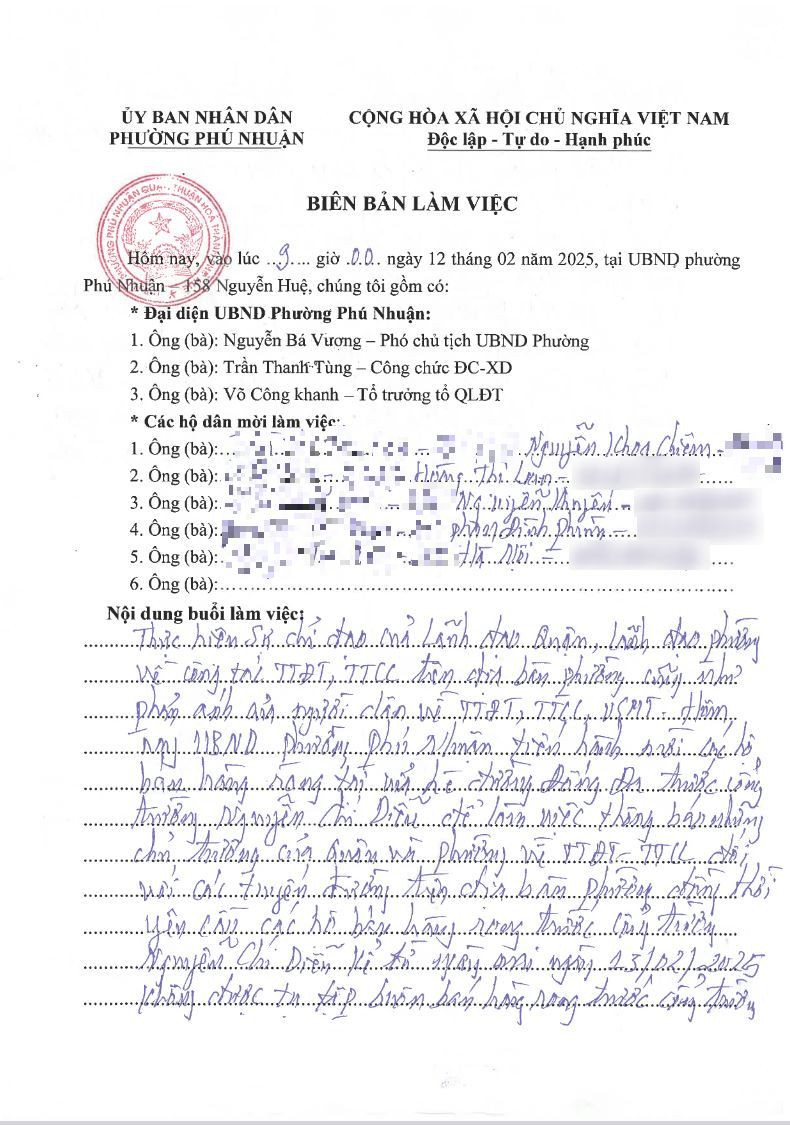 ỦY BAN NHÂN DÂN
PHƯỜNG PHÚ NHUẬN
CỘNG HÒA XÃ HỘI CHỦ NGHĨA VIỆT NAM
Độc lập - Tự do - Hạnh phúc
BIÊN BẢN LÀM VIỆC
Hôm nay, vào lúc 9 giờ 00 ngày 12 tháng 02 năm 2025, tại UBND phường
Phú Nhuận – 158 Nguyễn Huệ, chúng tôi gồm có:
* Đại diện UBND Phường Phú Nhuận:
1. Ông (bà): Nguyễn Bá Vượng – Phó chủ tịch UBND Phường
2. Ông (bà): Trần Thanh Tùng – Công chức ĐC-XD
3. Ông (bà): Võ Công khanh – Tổ trưởng tổ QLĐT
* Các hộ dân mời làm việc:
1. Ông (bà): Nguyễn Khoa Chiêm -
2. Ông (bà): Thị -
3. Ông (bà): Nguyễn -
4. Ông (bà): Đình Phùng -
5. Ông (bà): Hà Nội -
6. Ông (bà):
Nội dung buổi làm việc:
Thực hiện sự chỉ đạo của Lãnh đạo Quận, lãnh đạo phường
về công tác TTĐT, TTCC trên địa bàn phường cũng như
phản ánh của người dân về TTĐT, TTCC, VSMT. Hôm
nay UBND phường Phú Nhuận tiến hành mời các hộ
bán hàng rong tại vỉa hè đường Đống Đa trước cổng
trường Nguyễn Chí Diễu để làm việc thông báo những
chủ trương của Quận và phường về TTĐT - TTCC đối
với các tuyến đường trên địa bàn phường đồng thời
yêu cầu các hộ bán hàng rong trước cổng trường
Nguyễn Chí Diễu kể từ ngày mai ngày 13/02/2025
không được tụ tập buôn bán hàng rong trước cổng trường